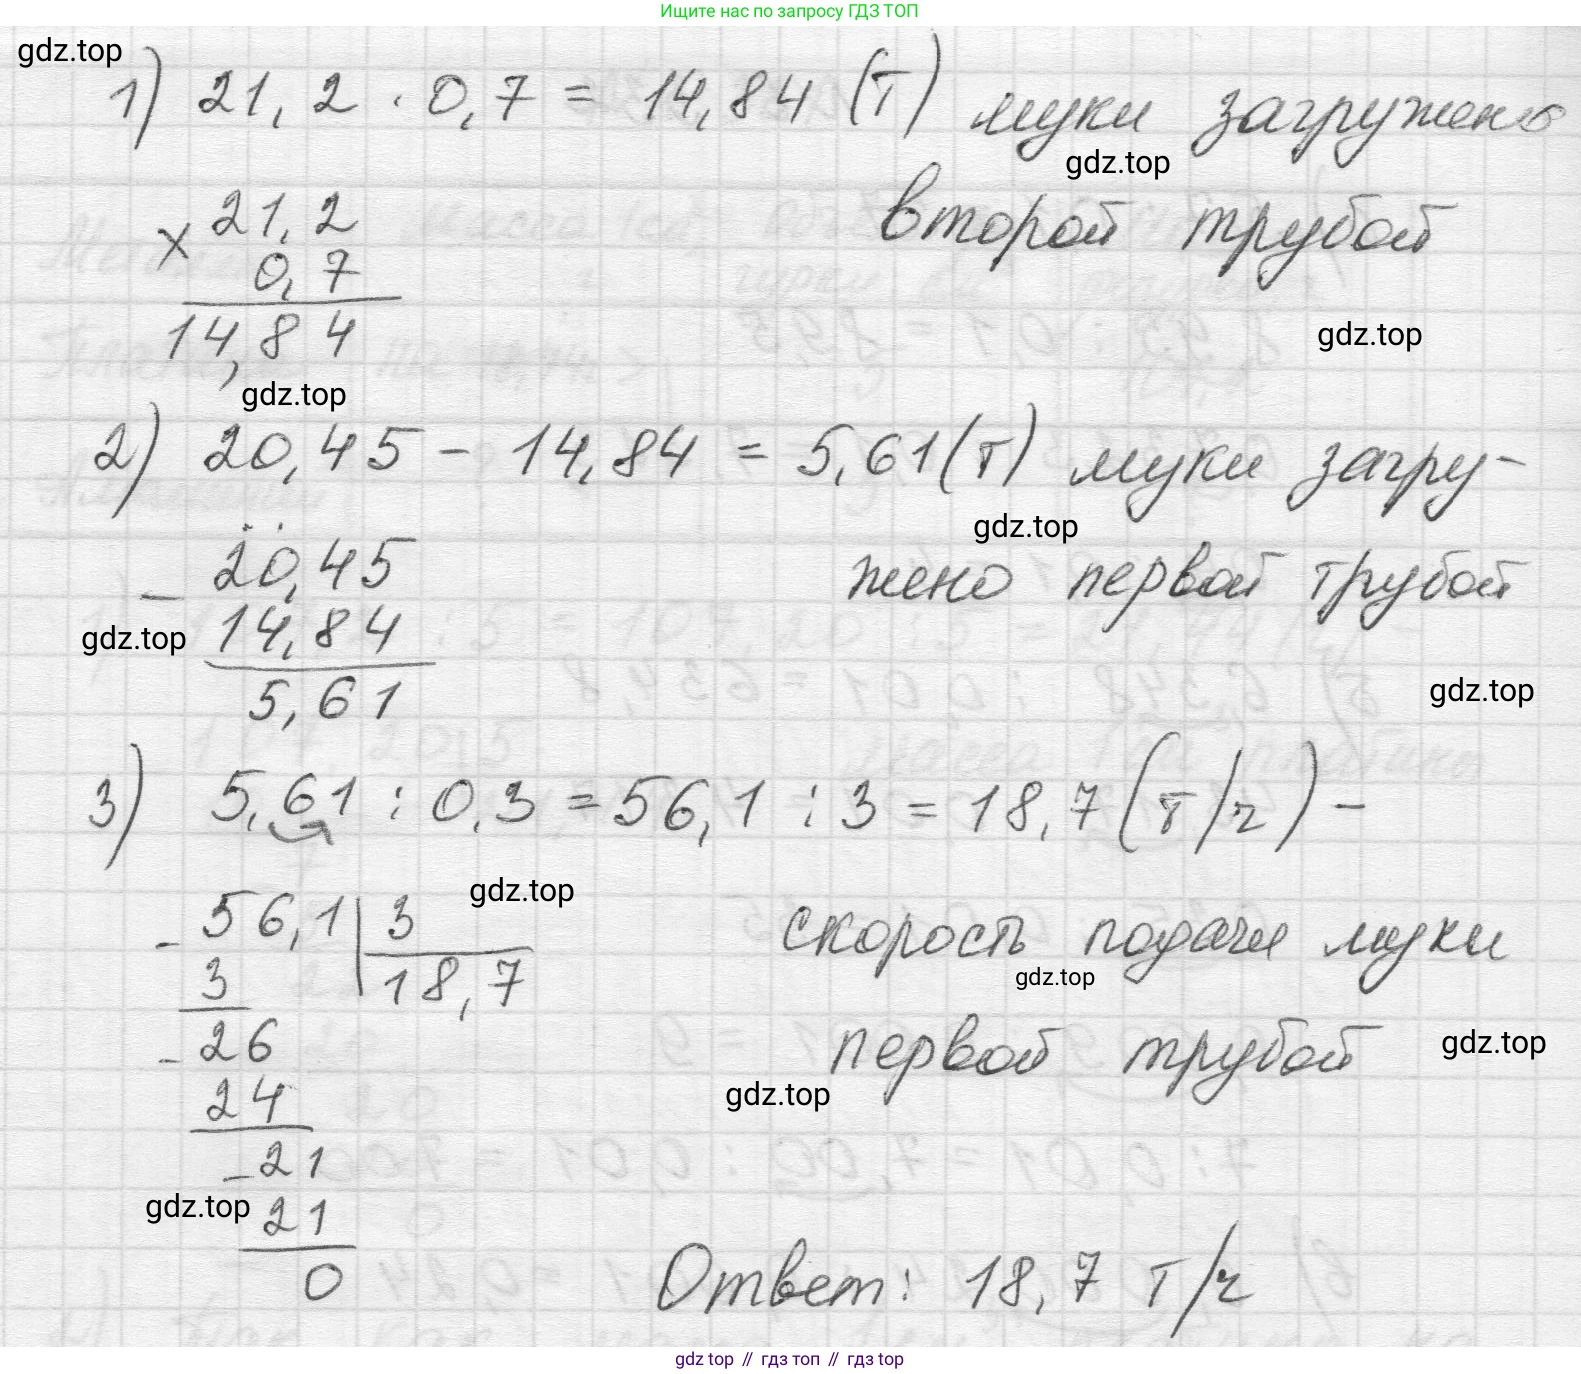 Ищите нас по запросу ГДЗ ТОП
gdz.top
1) 21,2 · 0,7 = 14,84 (т) муки загружено
gdz.top
второй трубой
× 21,2
0,7
14,84
gdz.top
gdz.top
2) 20,45 - 14,84 = 5,61 (т) муки загру-
gdz.top
жено первой трубой
- 20,45
14,84
gdz.top
5,61
gdz.top
3) 5,61 : 0,3 = 56,1 : 3 = 18,7 (т/ч) -
gdz.top
скорость подачи муки
gdz.top
первой трубой
gdz.top
gdz.top
- 56,1 | 3
3 18,7
- 26
24
- 21
gdz.top
21
0
Ответ: 18,7 т/ч
gdz top // гдз топ // гдз top